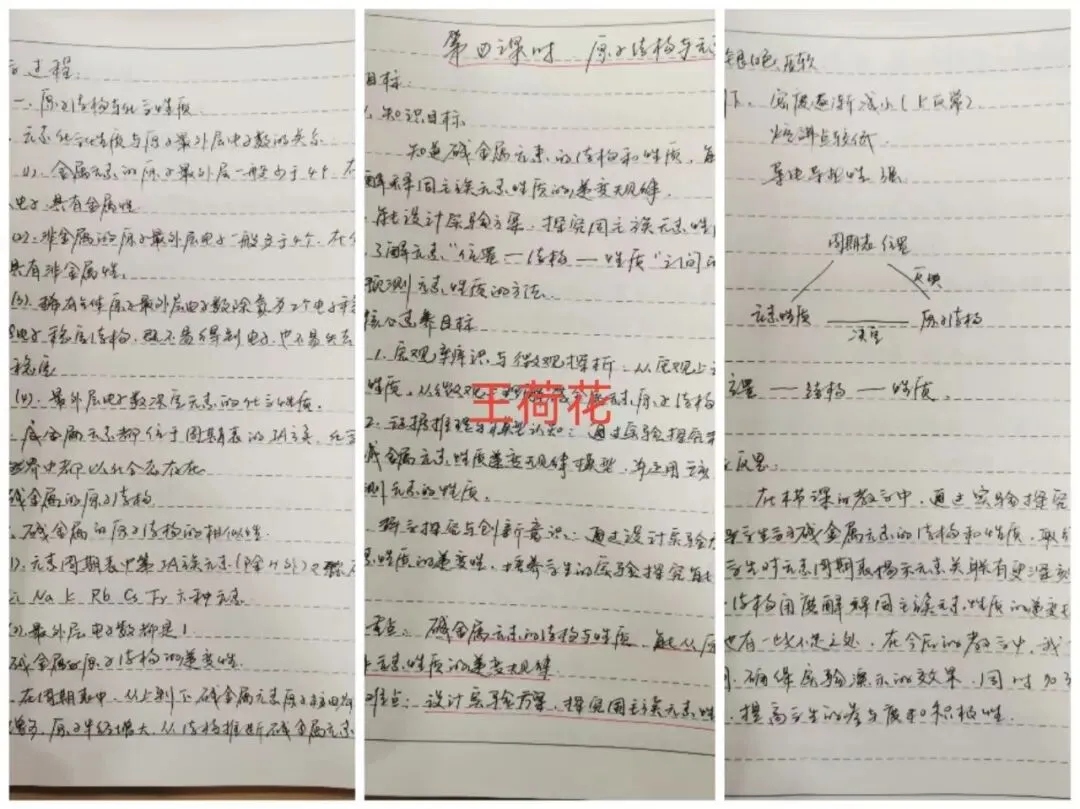 过程:
一、原子结构与化学性质
元素化学性质与原子最外层电子数的关系
(1). 金属元素的原子最外层一般少于4个, 在
电子, 具有金属性
(2). 非金属的原子最外层电子一般多于4个, 在
具有非金属性.
(3). 稀有气体原子最外层电子数除氦为2个电子
电子稳定结构, 既不易得到电子, 也不易失去
稳定
(4). 最外层电子数决定元素的化学性质.
碱金属元素都位于周期表的IA族,
界中都以化合态存在
碱金属的原子结构
碱金属的原子结构的相似性
1). 元素周期表中第IA族元素(除H外)
Na K Rb Cs Fr 六种元素
最外层电子数都是1
碱金属原子结构的递变性.
在周期表中, 从上到下碱金属元素原子
增多, 原子半径增大, 从结构推断碱金属元素
第四课时 原子结构与元
目标:
知识目标
知道碱金属元素的结构和性质, 能
解释同主族元素性质的递变规律.
能设计实验方案, 探究同主族元素性
了解元素“位置—结构—性质”之间
预测元素性质的方法.
核心素养目标
1. 宏观辨识与微观探析: 从宏观上
性质, 从微观上 金属元素原子结构
王荷花
2. 证据推理与模型认知: 通过实验探究
碱金属元素性质递变规律模型, 并运用
测元素的性质.
科学探究与创新意识: 通过设计实验
性质的递变性, 培养学生的实验探究能
重点: 碱金属元素的结构与性质, 能从原
元素性质的递变规律
难点: 设计实验方案, 探究同主族元素性
银白色, 较软
下, 密度逐渐减小(上反常).
熔沸点较低.
导电导热性强
周期表位置
反映
元素性质 原子结构
决定
位置 — 结构 — 性质.
反思:
在本节课的教学中, 通过实验探究
学生对碱金属元素的结构和性质, 取
学生对元素周期表揭示元素关联有更深刻
结构角度解释同主族元素性质的递变
也有一些不足之处, 在今后的教学中, 我
确保实验演示的效果, 同时加
提高学生的参与度和积极性.